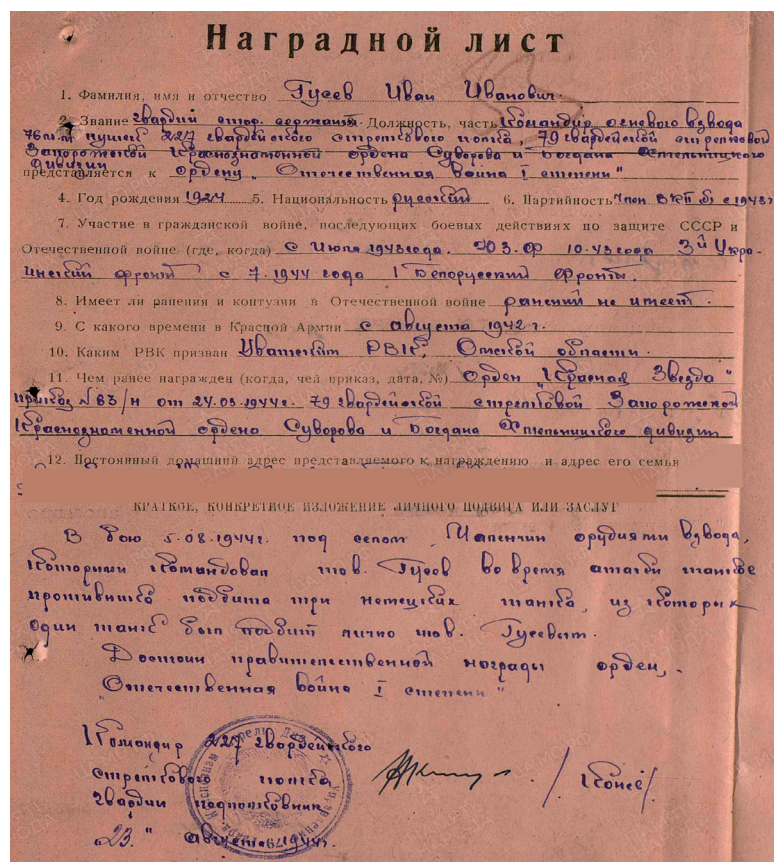 Наградной лист
1. Фамилия, имя и отчество Гусев Иван Иванович.
2. Звание гвардии стар. сержант. Должность, часть Командир огневого взвода
76 м.м пушек 227 гвардейского стрелкового полка, 79 гвардейской стрелковой
Запорожской Краснознаменной ордена Суворова и Богдана Хмельницкого
дивизии
представляется к ордену „Отечественная война I степени"
4. Год рождения 1924 5. Национальность русский 6. Партийность член ВКП(б) с 1943 г
7. Участие в гражданской войне, последующих боевых действиях по защите СССР и
Отечественной войне (где, когда) с июля 1943 года. Ю.З.Ф 10.43 года 3й Укра-
инский фронт с 7.1944 года 1 Белорусский фронты.
8. Имеет ли ранения и контузии в Отечественной войне ранений не имеет.
9. С какого времени в Красной Армии с августа 1942 г.
10. Каким РВК призван Уватским РВК, Омской области.
11. Чем ранее награжден (когда, чей приказ, дата, №) орден „Красная Звезда"
приказ №83/н от 24.05.1944г. 79 гвардейской стрелковой Запорожской
Краснознаменной ордена Суворова и Богдана Хмельницкого дивизии
12. Постоянный домашний адрес представляемого к награждению и адрес его семьи
КРАТКОЕ, КОНКРЕТНОЕ ИЗЛОЖЕНИЕ ЛИЧНОГО ПОДВИГА ИЛИ ЗАСЛУГ
В бою 5.08.1944г. под селом орудиями взвода,
которыми командовал тов. Гусев во время атаки танков
противника подбито три немецких танка, из которых
один танк был подбит лично тов. Гусевым.
Достоин правительственной награды орден,
„Отечественная война I степени"
Командир 227 гвардейского
стрелкового полка
Гвардии подполковник
„23." августа 1944г.